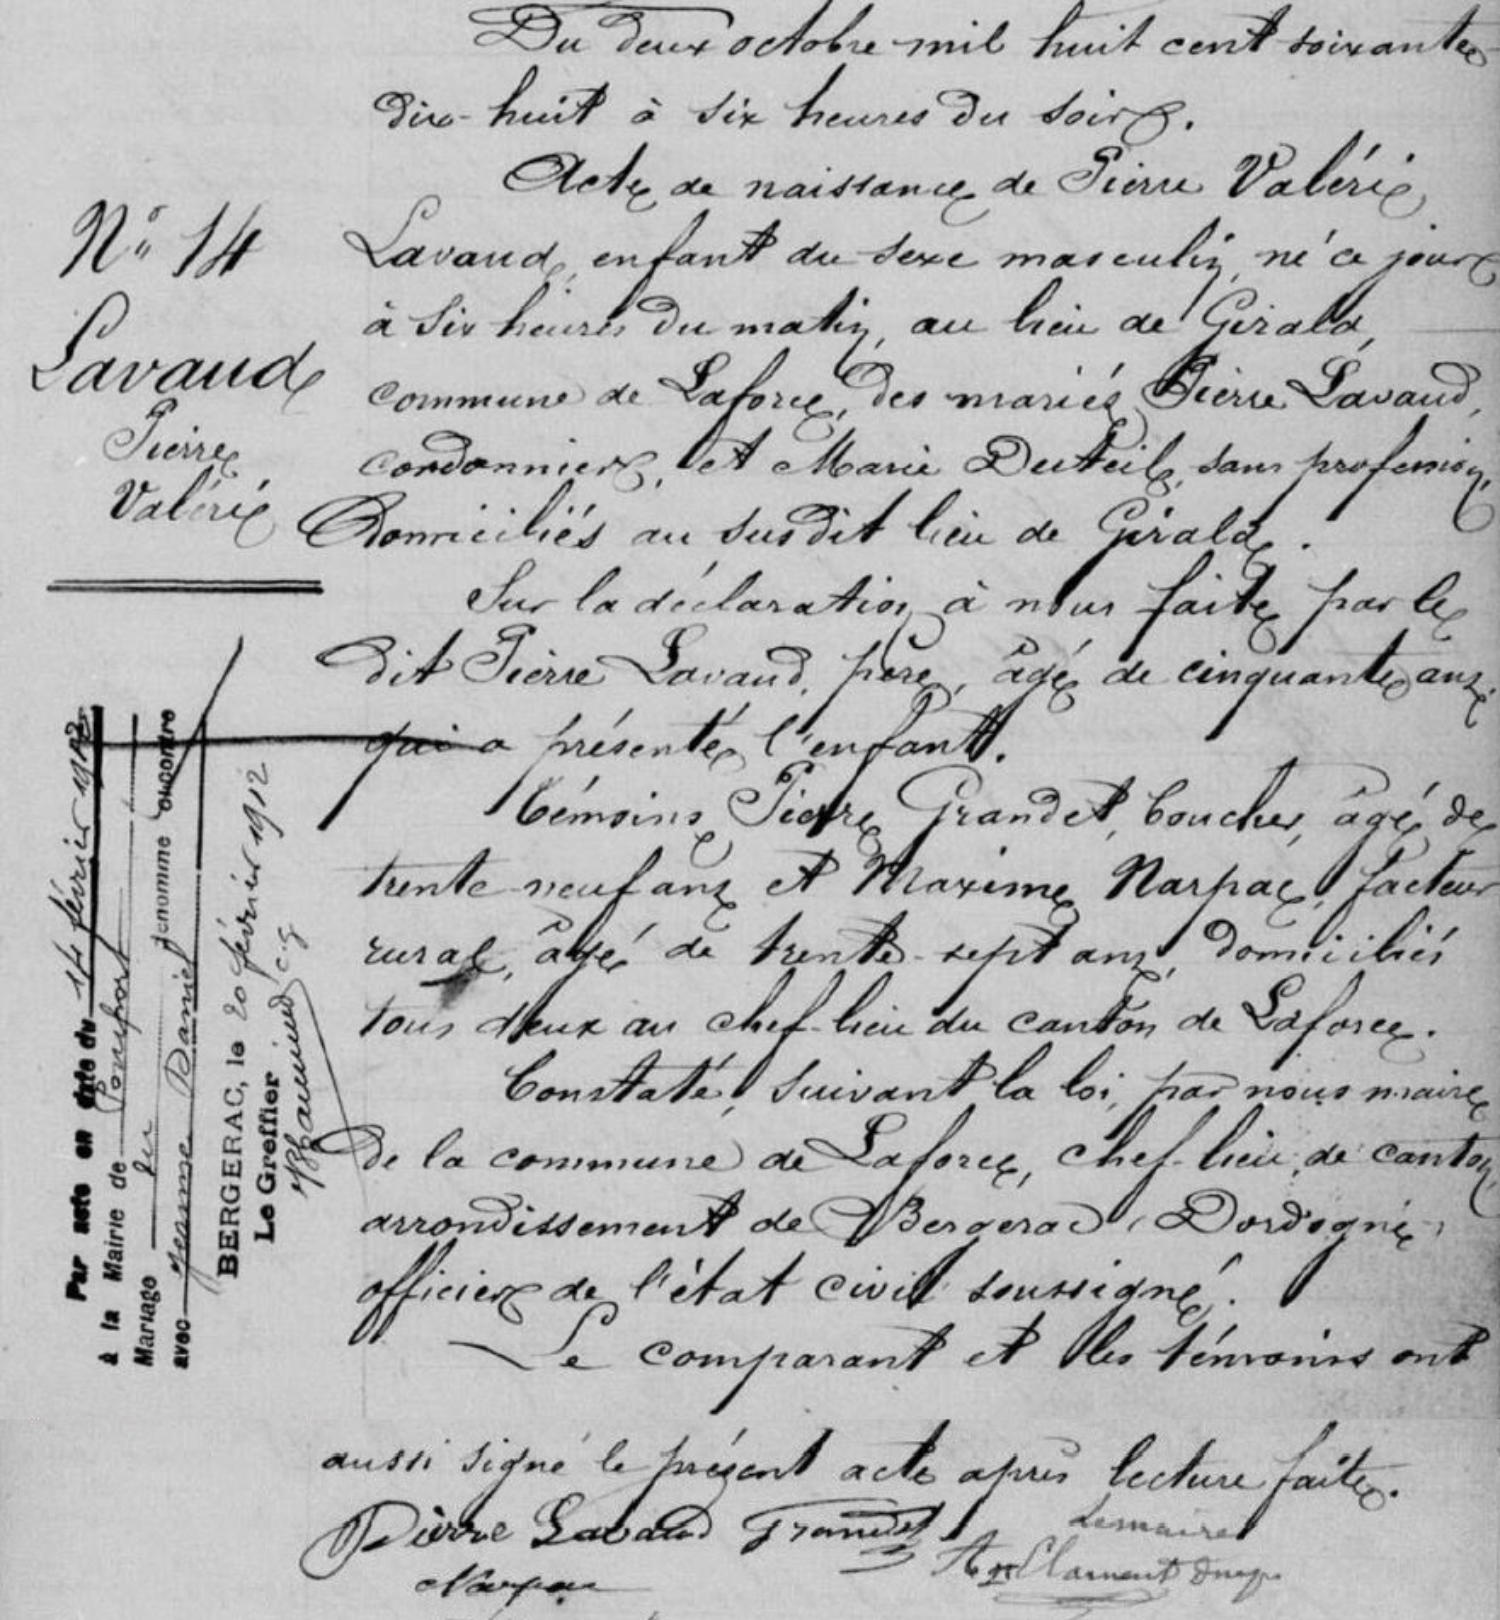 Du deux octobre mil huit cent soixante
dix-huit à six heures du soir.
Acte de naissance de Pierre Valérie
Lavaud, enfant du sexe masculin, né ce jour
à six heures du matin, au lieu de Girald,
commune de Laforce, des mariés Pierre Lavaud,
cordonnier, et Marie Duteil, sans profession,
Domiciliés au susdit lieu de Girald.
Sur la déclaration à nous faite par le
dit Pierre Lavaud, père, âgé de cinquante ans,
qui a présenté l'enfant.
Témoins Pierre Grandet, boucher, âgé de
trente-neuf ans et Maxime Narpac, facteur
rural, âgé de trente-sept ans, domiciliés
tous deux au chef-lieu du canton de Laforce.
Constaté, suivant la loi, par nous maire
de la commune de Laforce, chef-lieu de canton,
arrondissement de Bergerac (Dordogne)
officier de l'état civil soussigné.
Le comparant et les témoins ont
aussi signé le présent acte après lecture faite.
Pierre Lavaud Grandet
Le maire
Narpac
Clament
N° 14
Lavaud
Pierre
Valérie
Par acte en date du 14 février 1912
à la Mairie de Pomport
Mariage du dénommé ci-contre
avec Jeanne Daniel
BERGERAC, le 20 février 1912
Le Greffier